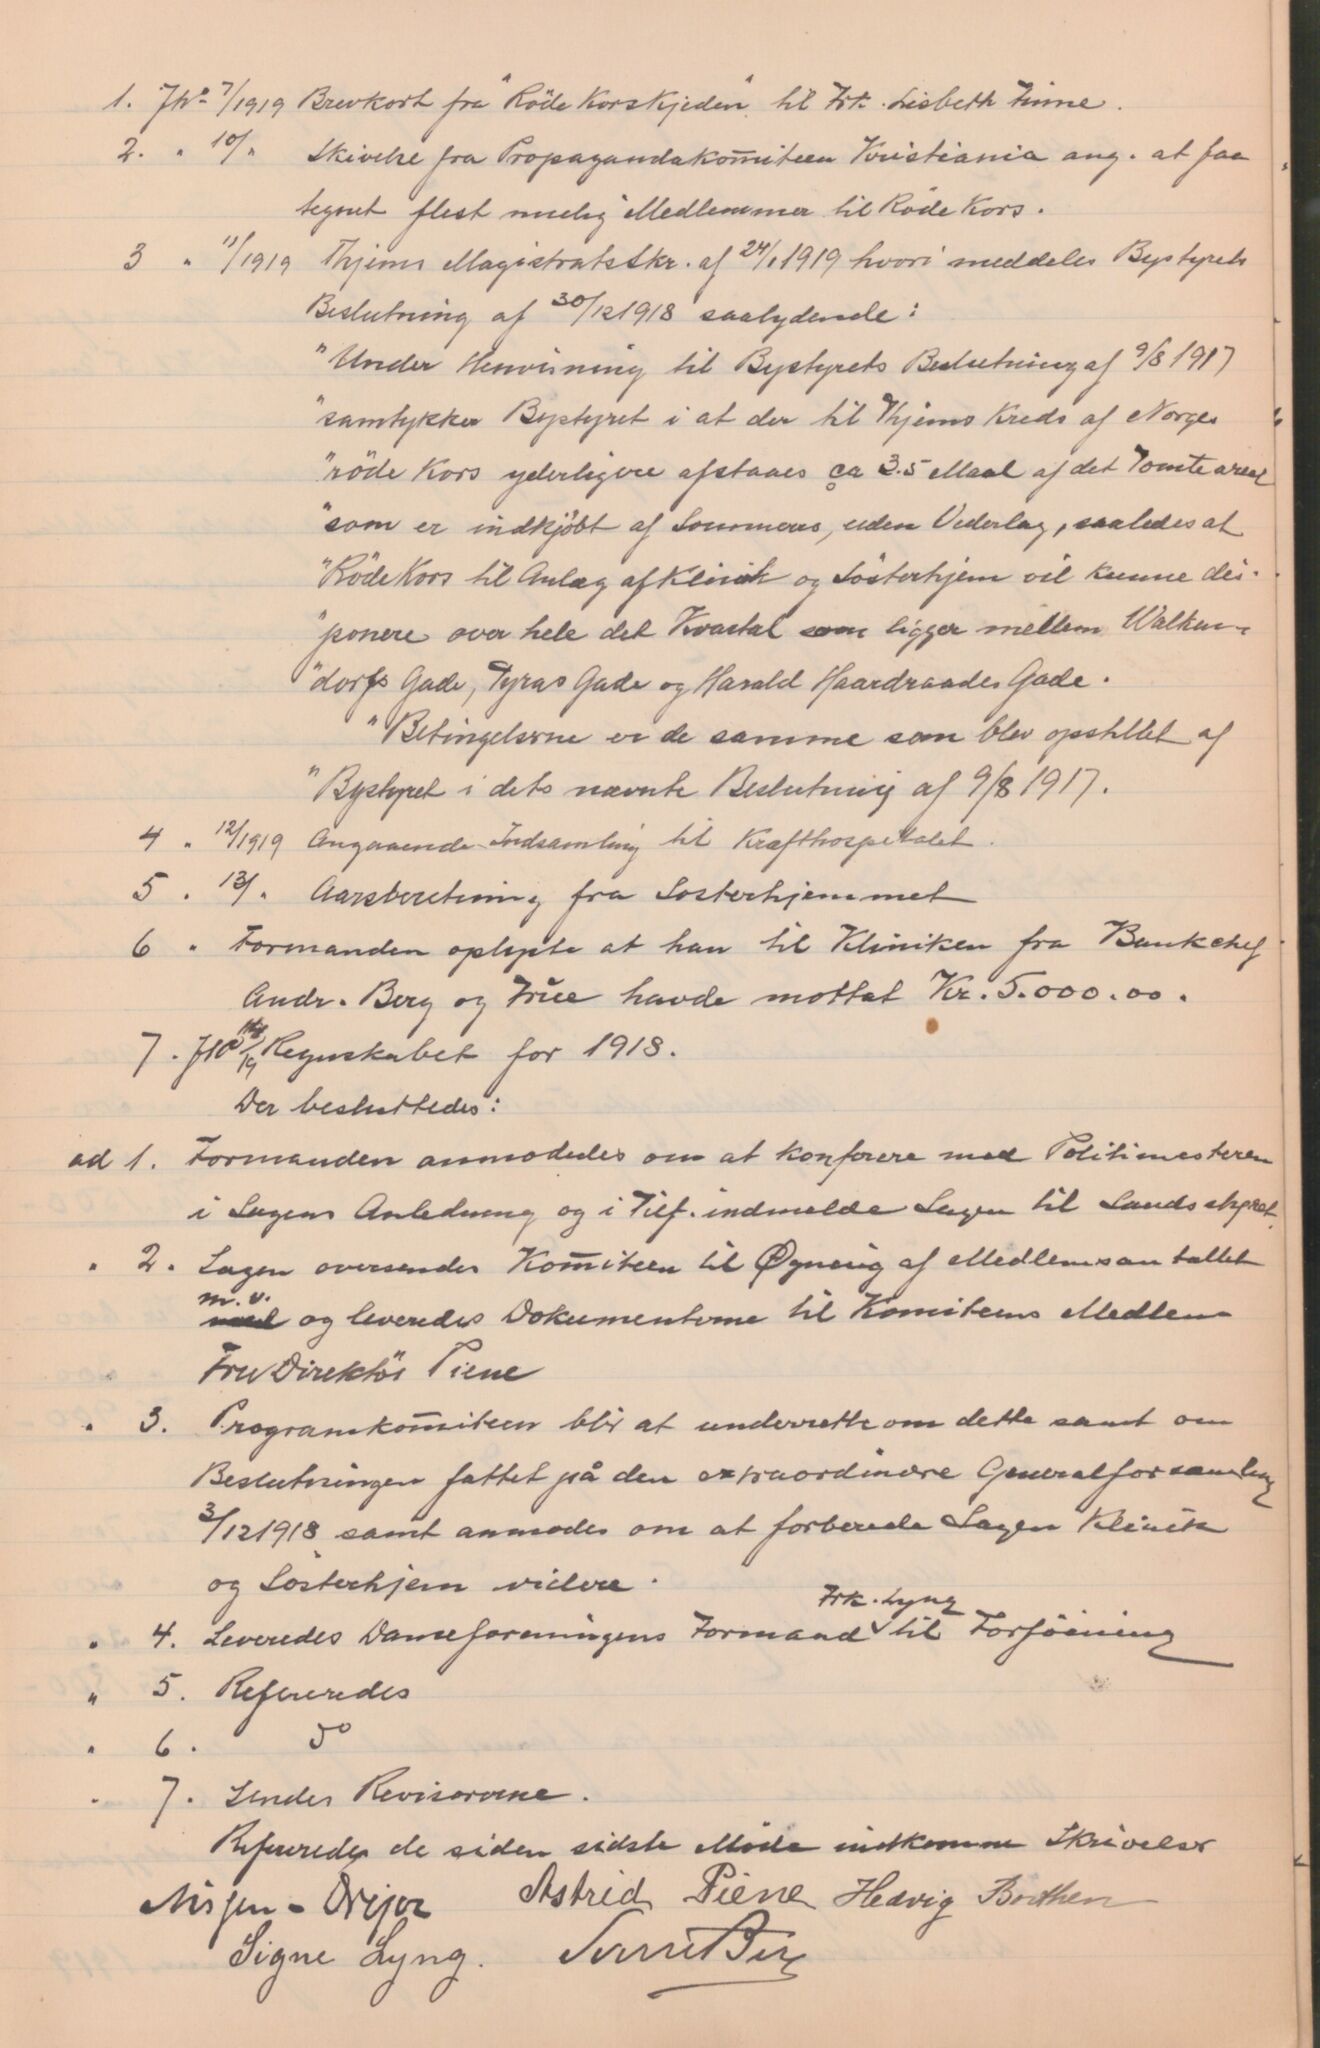 1. JNo 7/1919 Brevkort fra "Røde Korskjeden" til Frk. Lisbeth Finne.
2. " 10/" Skivelse fra Propagandakom̅iteen Kristiania ang. at faa
tegnet flest mulig Medlemmer til Røde Kors.
3 " 11/1919 Thjems Magistrats Skr. af 24/1 1919 hvori meddeles Bystyrets
Beslutning af 30/12 1918 saalydende:
"Under Henvisning til Bystyrets Beslutning af 9/8 1917
"samtykker Bystyret i at der til Thjems Kreds af Norges
"røde Kors yderligere afstaaes ca 3.5 Maal af det Tomteareal
"som er indkjøbt af Sommers, uden Vederlag, saaledes at
"Røde Kors til Anlæg af Klinik og Søsterhjem vil kunne dis-
"ponere over hele det Kvartal som ligger mellem Walken-
"dorfs Gade, Tyras Gade og Harald Haardraades Gade.
"Betingelserne er de samme som blev opstillet af
"Bystyret i dets nævnte Beslutning af 9/8 1917.
4 " 12/1919 Angaaende Indsamling til Kræfthospitalet.
5 " 13/" Aarsberetning fra Søsterhjemmet
6 " Formanden oplyste at han til Kliniken fra Bankchef
Andr. Berg og Frue havde mottat Kr. 5.000.00.
7. JNo 14/19 Regnskabet for 1918.
Der besluttedes:
ad 1. Formanden anmodedes om at konferere med Politimesteren
i Sagens Anledning og i Tilf. indmelde Sagen til Landsstyret.
" 2. Sagen oversendes Kom̅iteen til Øgning af Medlemsantallet
m.v. og leveredes Dokumenterne til Komiteens Medlem
Fru Direktør Piene
" 3. Programkom̅iteen blir at underrette om dette samt om
Beslutningen fattet på den extraordinære Generalforsamling
3/12 1918 samt anmodes om at forberede Sagen Klinik
og Søsterhjem videre.
" 4. Leveredes Dameforeningens Formand Frk. Lyng til Forføining
" 5. Refereredes
" 6. Do
" 7. Sendes Revisorerne.
Refereredes de siden sidste Møde indkomne Skrivelser
Astrid Piene Hedvig Bothen
Signe Lyng.